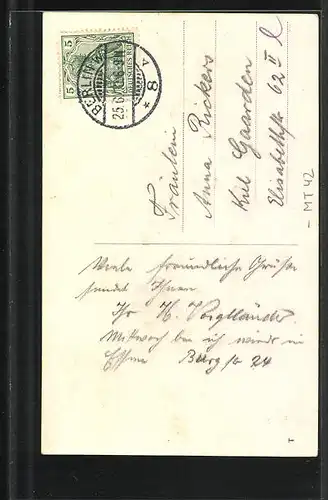 5
5
DEUTSCHES REICH
BERLIN W.
25.6
8
V
*
Fräulein
Anna Rickers
Kiel Gaarden
Elisabethstr 62 II l
- MT42
Viele freundliche Grüße
sendet Ihnen
Ihr H. Voigtländer.
Mittwoch bin ich wieder in
Burg
24
T